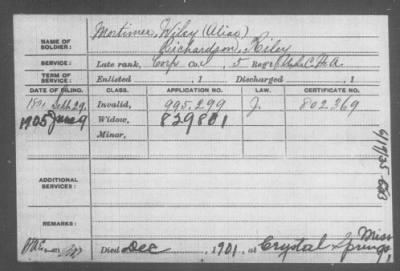 NAME OF SOLDIER: Mortimer, Wiley (Alias)
Richardson, Riley
SERVICE: Late rank, Corp Co. 5 Reg't U.S.C.H.A.
TERM OF SERVICE: Enlisted , 1 Discharged , 1
DATE OF FILING. CLASS. APPLICATION NO. LAW. CERTIFICATE NO.
1891 Sept 29. Invalid, 995,299 J. 802369
1905 June 9 Widow, 829801
Minor,
ADDITIONAL SERVICES:
REMARKS:
Died Dec , 1901, at Crystal Springs, Miss